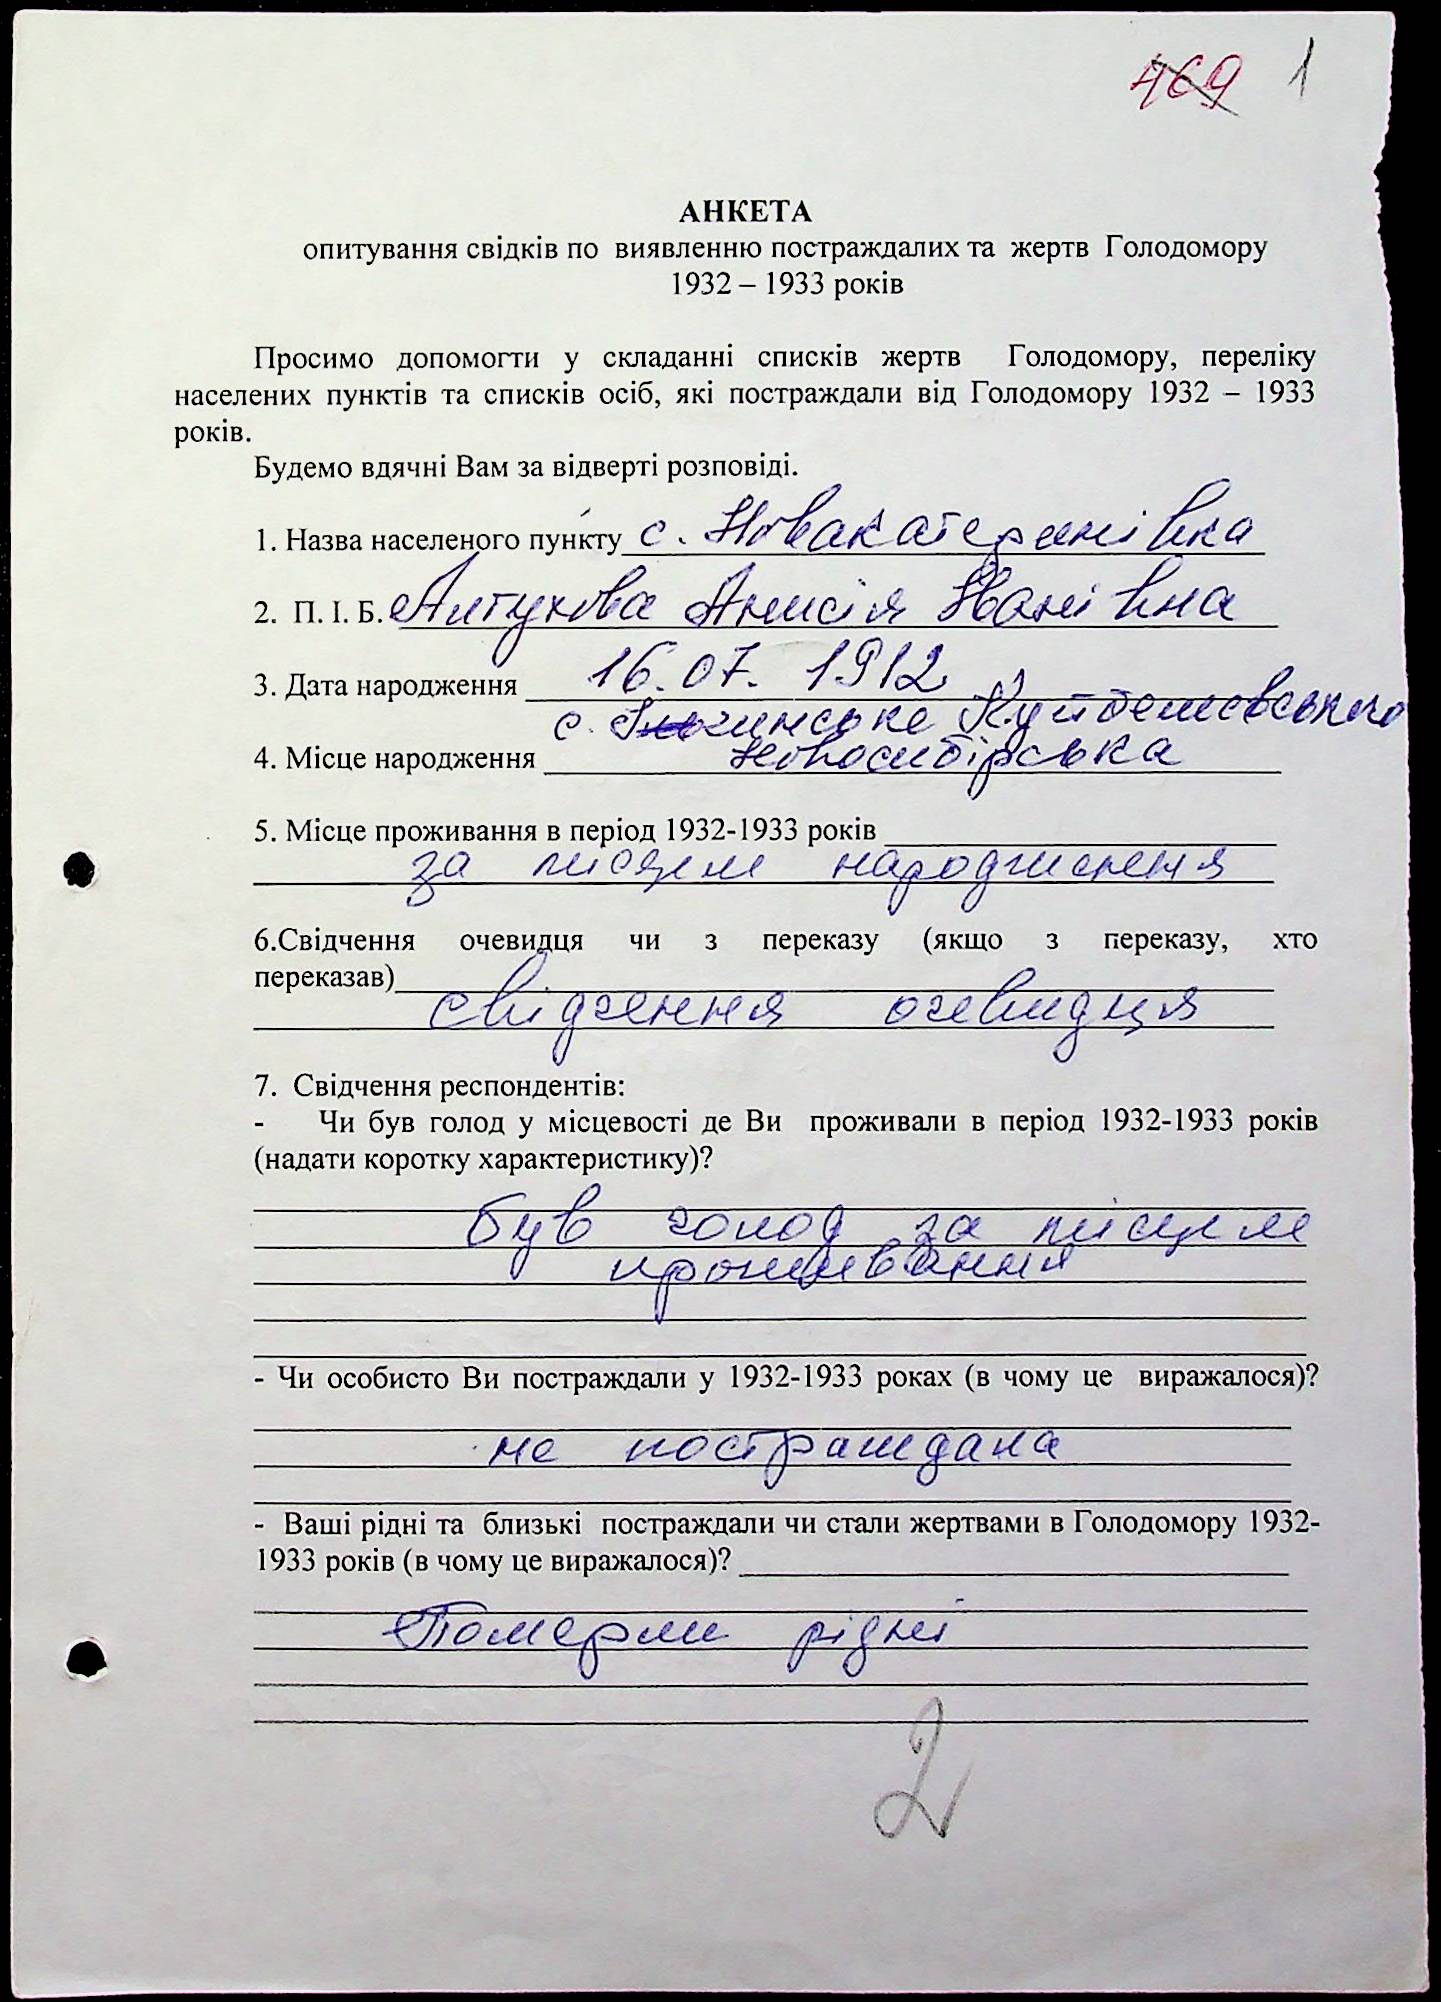 469 1
АНКЕТА
опитування свідків по виявленню постраждалих та жертв Голодомору
1932 – 1933 років
Просимо допомогти у складанні списків жертв Голодомору, переліку
населених пунктів та списків осіб, які постраждали від Голодомору 1932 – 1933
років.
Будемо вдячні Вам за відверті розповіді.
1. Назва населеного пункту с. Новакатеринівка
2. П. І. Б. Анисія Іванівна
3. Дата народження 16.07. 1912
с. Куйбешевського
4. Місце народження Новосибірська
5. Місце проживання в період 1932-1933 років
за місцем народження
6.Свідчення очевидця чи з переказу (якщо з переказу, хто
переказав)
свідчення очевидця
7. Свідчення респондентів:
- Чи був голод у місцевості де Ви проживали в період 1932-1933 років
(надати коротку характеристику)?
був голод за місцем
проживання
- Чи особисто Ви постраждали у 1932-1933 роках (в чому це виражалося)?
не постраждала
- Ваші рідні та близькі постраждали чи стали жертвами в Голодомору 1932-
1933 років (в чому це виражалося)?
Померли рідні
2